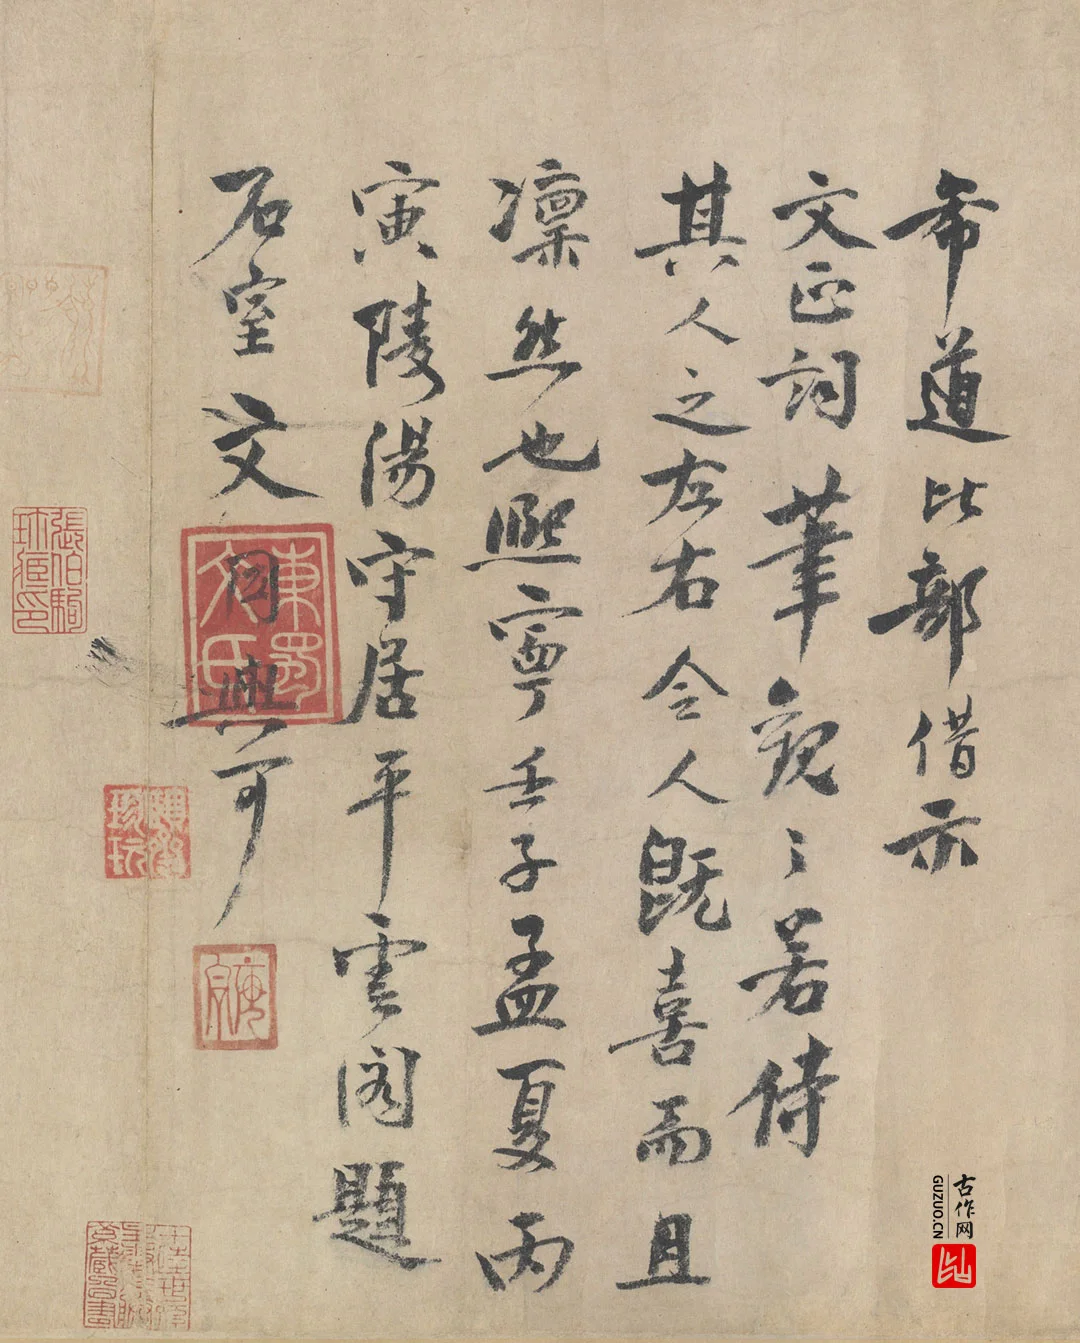 希道比部借示
文正詞筆觀〻若侍
其人之左右令人既喜而且
凛然也熙寧壬子孟夏丙
寅陵陽守居平雲閣題
石室文同與可
東蜀文氏
張伯駒珍藏印
珍玩
古作网
GUZUO.CN